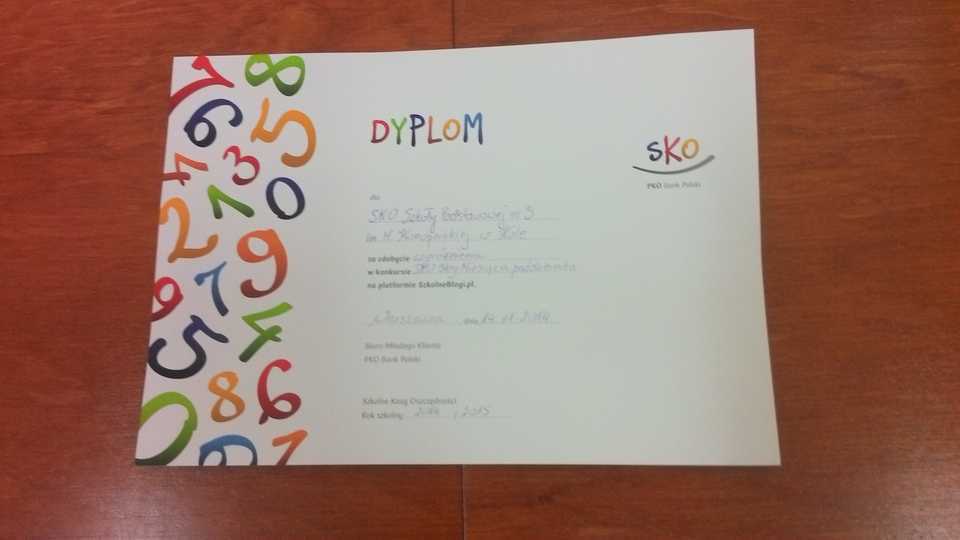 DYPLOM
SKO
PKO Bank Polski
dla
SKO Szkoły Podstawowej nr 3
im. M. w
za zdobycie wyróżnienia
w konkursie SKO Blog Miesiąca października
na platformie SzkolneBlogi.pl.
Warszawa dnia 14.11.2014
Biuro Młodego Klienta
PKO Bank Polski
Szkolne Kasy Oszczędności
Rok szkolny 2014 / 2015